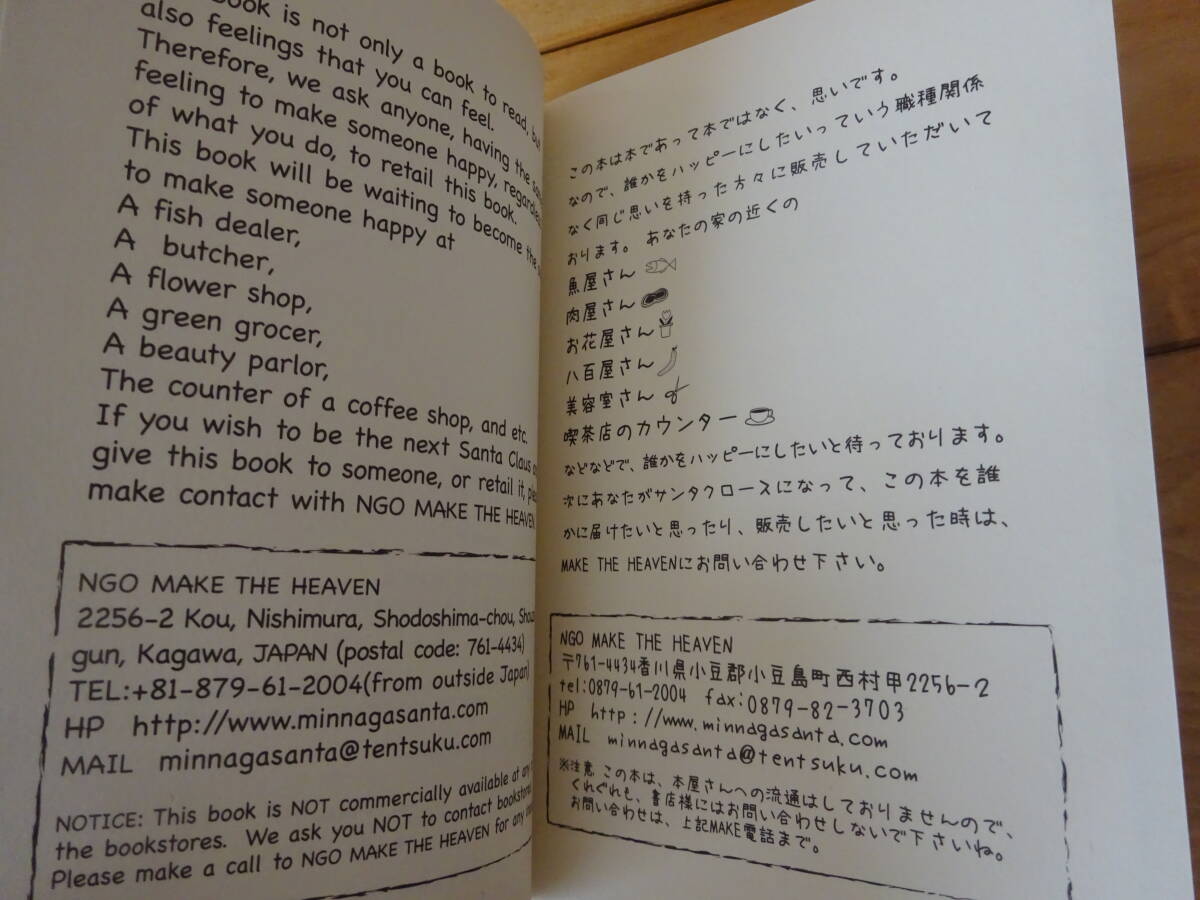 book is not only a book to read, but
also feelings that you can feel.
Therefore, we ask anyone, having the
feeling to make someone happy, regardless
of what you do, to retail this book.
This book will be waiting to become the
to make someone happy at
A fish dealer,
A butcher,
A flower shop,
A green grocer,
A beauty parlor,
The counter of a coffee shop, and etc.
If you wish to be the next Santa Claus
give this book to someone, or retail it,
make contact with NGO MAKE THE HEAVEN
NGO MAKE THE HEAVEN
2256-2 Kou, Nishimura, Shodoshima-chou,
gun, Kagawa, JAPAN (postal code: 761-4434)
TEL:+81-879-61-2004(from outside Japan)
HP http://www.minnagasanta.com
MAIL minnagasanta@tentsuku.com
NOTICE: This book is NOT commercially available at
the bookstores. We ask you NOT to contact bookstores
Please make a call to NGO MAKE THE HEAVEN for any
この本は本であって本ではなく、思いです。
なので、誰かをハッピーにしたいっていう職種関係
なく同じ思いを持った方々に販売していただいて
おります。 あなたの家の近くの
魚屋さん
肉屋さん
お花屋さん
八百屋さん
美容室さん
喫茶店のカウンター
などなどで、誰かをハッピーにしたいと待っております。
次にあなたがサンタクロースになって、この本を誰
かに届けたいと思ったり、販売したいと思った時は、
MAKE THE HEAVENにお問い合わせ下さい。
NGO MAKE THE HEAVEN
〒761-4434香川県小豆郡小豆島町西村甲2256-2
tel:0879-61-2004 fax:0879-82-3703
HP http://www.minnagasanta.com
MAIL minnagasanta@tentsuku.com
※注意 この本は、本屋さんへの流通はしておりませんので、
くれぐれも、書店様にはお問い合わせしないで下さいね。
お問い合わせは、上記MAKE電話まで。